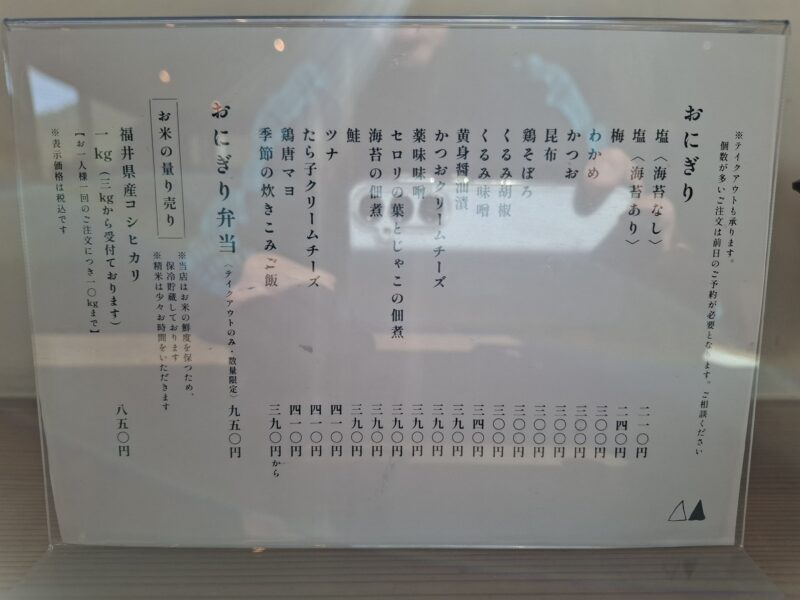 ※テイクアウトも承ります。
個数が多いご注文は前日のご予約が必要となります。ご相談ください
おにぎり
塩〈海苔なし〉 二一〇円
塩〈海苔あり〉 二四〇円
梅 三〇〇円
わかめ 三〇〇円
かつお 三〇〇円
昆布 三〇〇円
鶏そぼろ 三〇〇円
くるみ胡椒 三〇〇円
くるみ味噌 三四〇円
黄身醤油漬 三九〇円
かつおクリームチーズ 三九〇円
薬味味噌 三九〇円
セロリの葉とじゃこの佃煮 三九〇円
海苔の佃煮 三九〇円
鮭 三九〇円
ツナ 四一〇円
たら子クリームチーズ 四一〇円
鶏唐マヨ 四一〇円
季節の炊きこみご飯 三九〇円から
おにぎり弁当〈テイクアウトのみ・数量限定〉 九五〇円
お米の量り売り
※当店はお米の鮮度を保つため、
保冷貯蔵しております
※精米は少々お時間をいただきます
福井県産コシヒカリ 八五〇円
一kg（三kgから受付ております）
【お一人様一回のご注文につき一〇kgまで】
※表示価格は税込です